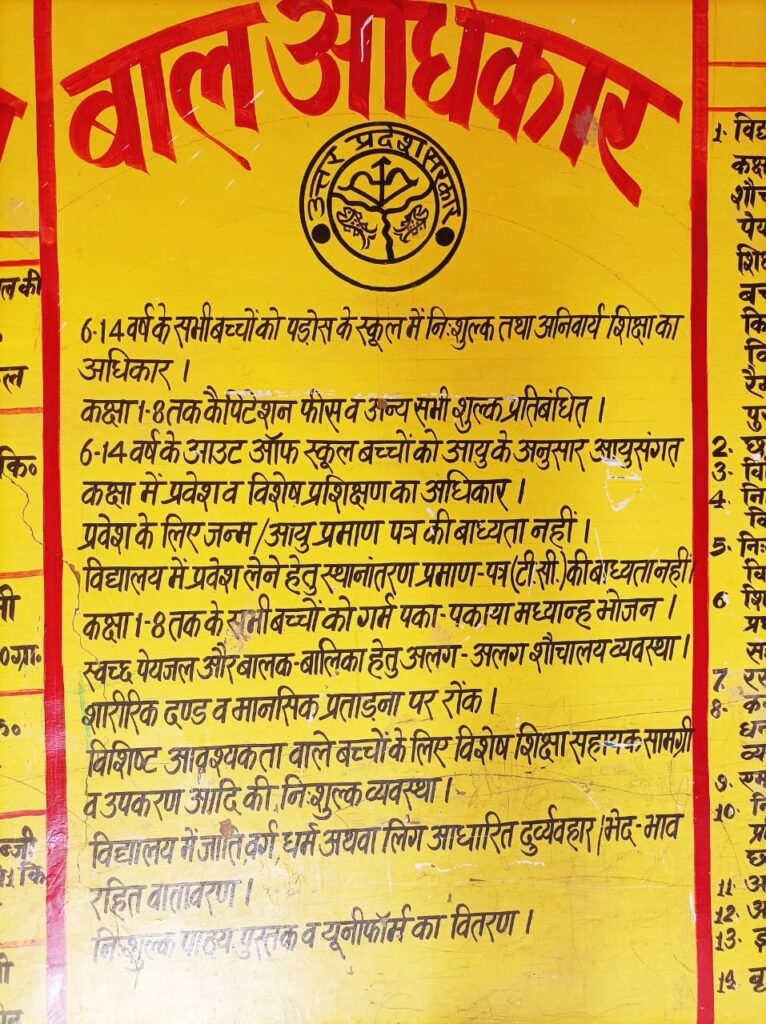 बाल अधिकार
उत्तर प्रदेश सरकार
6-14 वर्ष के सभी बच्चों को पड़ोस के स्कूल में निःशुल्क तथा अनिवार्य शिक्षा का
अधिकार ।
कक्षा 1-8 तक कैपिटेशन फीस व अन्य सभी शुल्क प्रतिबंधित ।
6-14 वर्ष के आउट ऑफ स्कूल बच्चों को आयु के अनुसार आयुसंगत
कक्षा में प्रवेश व विशेष प्रशिक्षण का अधिकार ।
प्रवेश के लिए जन्म/आयु प्रमाण पत्र की बाध्यता नहीं ।
विद्यालय में प्रवेश लेने हेतु स्थानांतरण प्रमाण-पत्र (टी.सी.) की बाध्यता नहीं।
कक्षा 1-8 तक के सभी बच्चों को गर्म पका-पकाया मध्यान्ह भोजन ।
स्वच्छ पेयजल और बालक-बालिका हेतु अलग-अलग शौचालय व्यवस्था ।
शारीरिक दण्ड व मानसिक प्रताड़ना पर रोंक ।
विशिष्ट आवश्यकता वाले बच्चों के लिए विशेष शिक्षा सहायक सामग्री
व उपकरण आदि की निःशुल्क व्यवस्था ।
विद्यालय में जाति, वर्ग, धर्म अथवा लिंग आधारित दुर्व्यवहार/भेद-भाव
रहित वातावरण ।
निःशुल्क पाठ्य पुस्तक व यूनीफॉर्म का वितरण ।